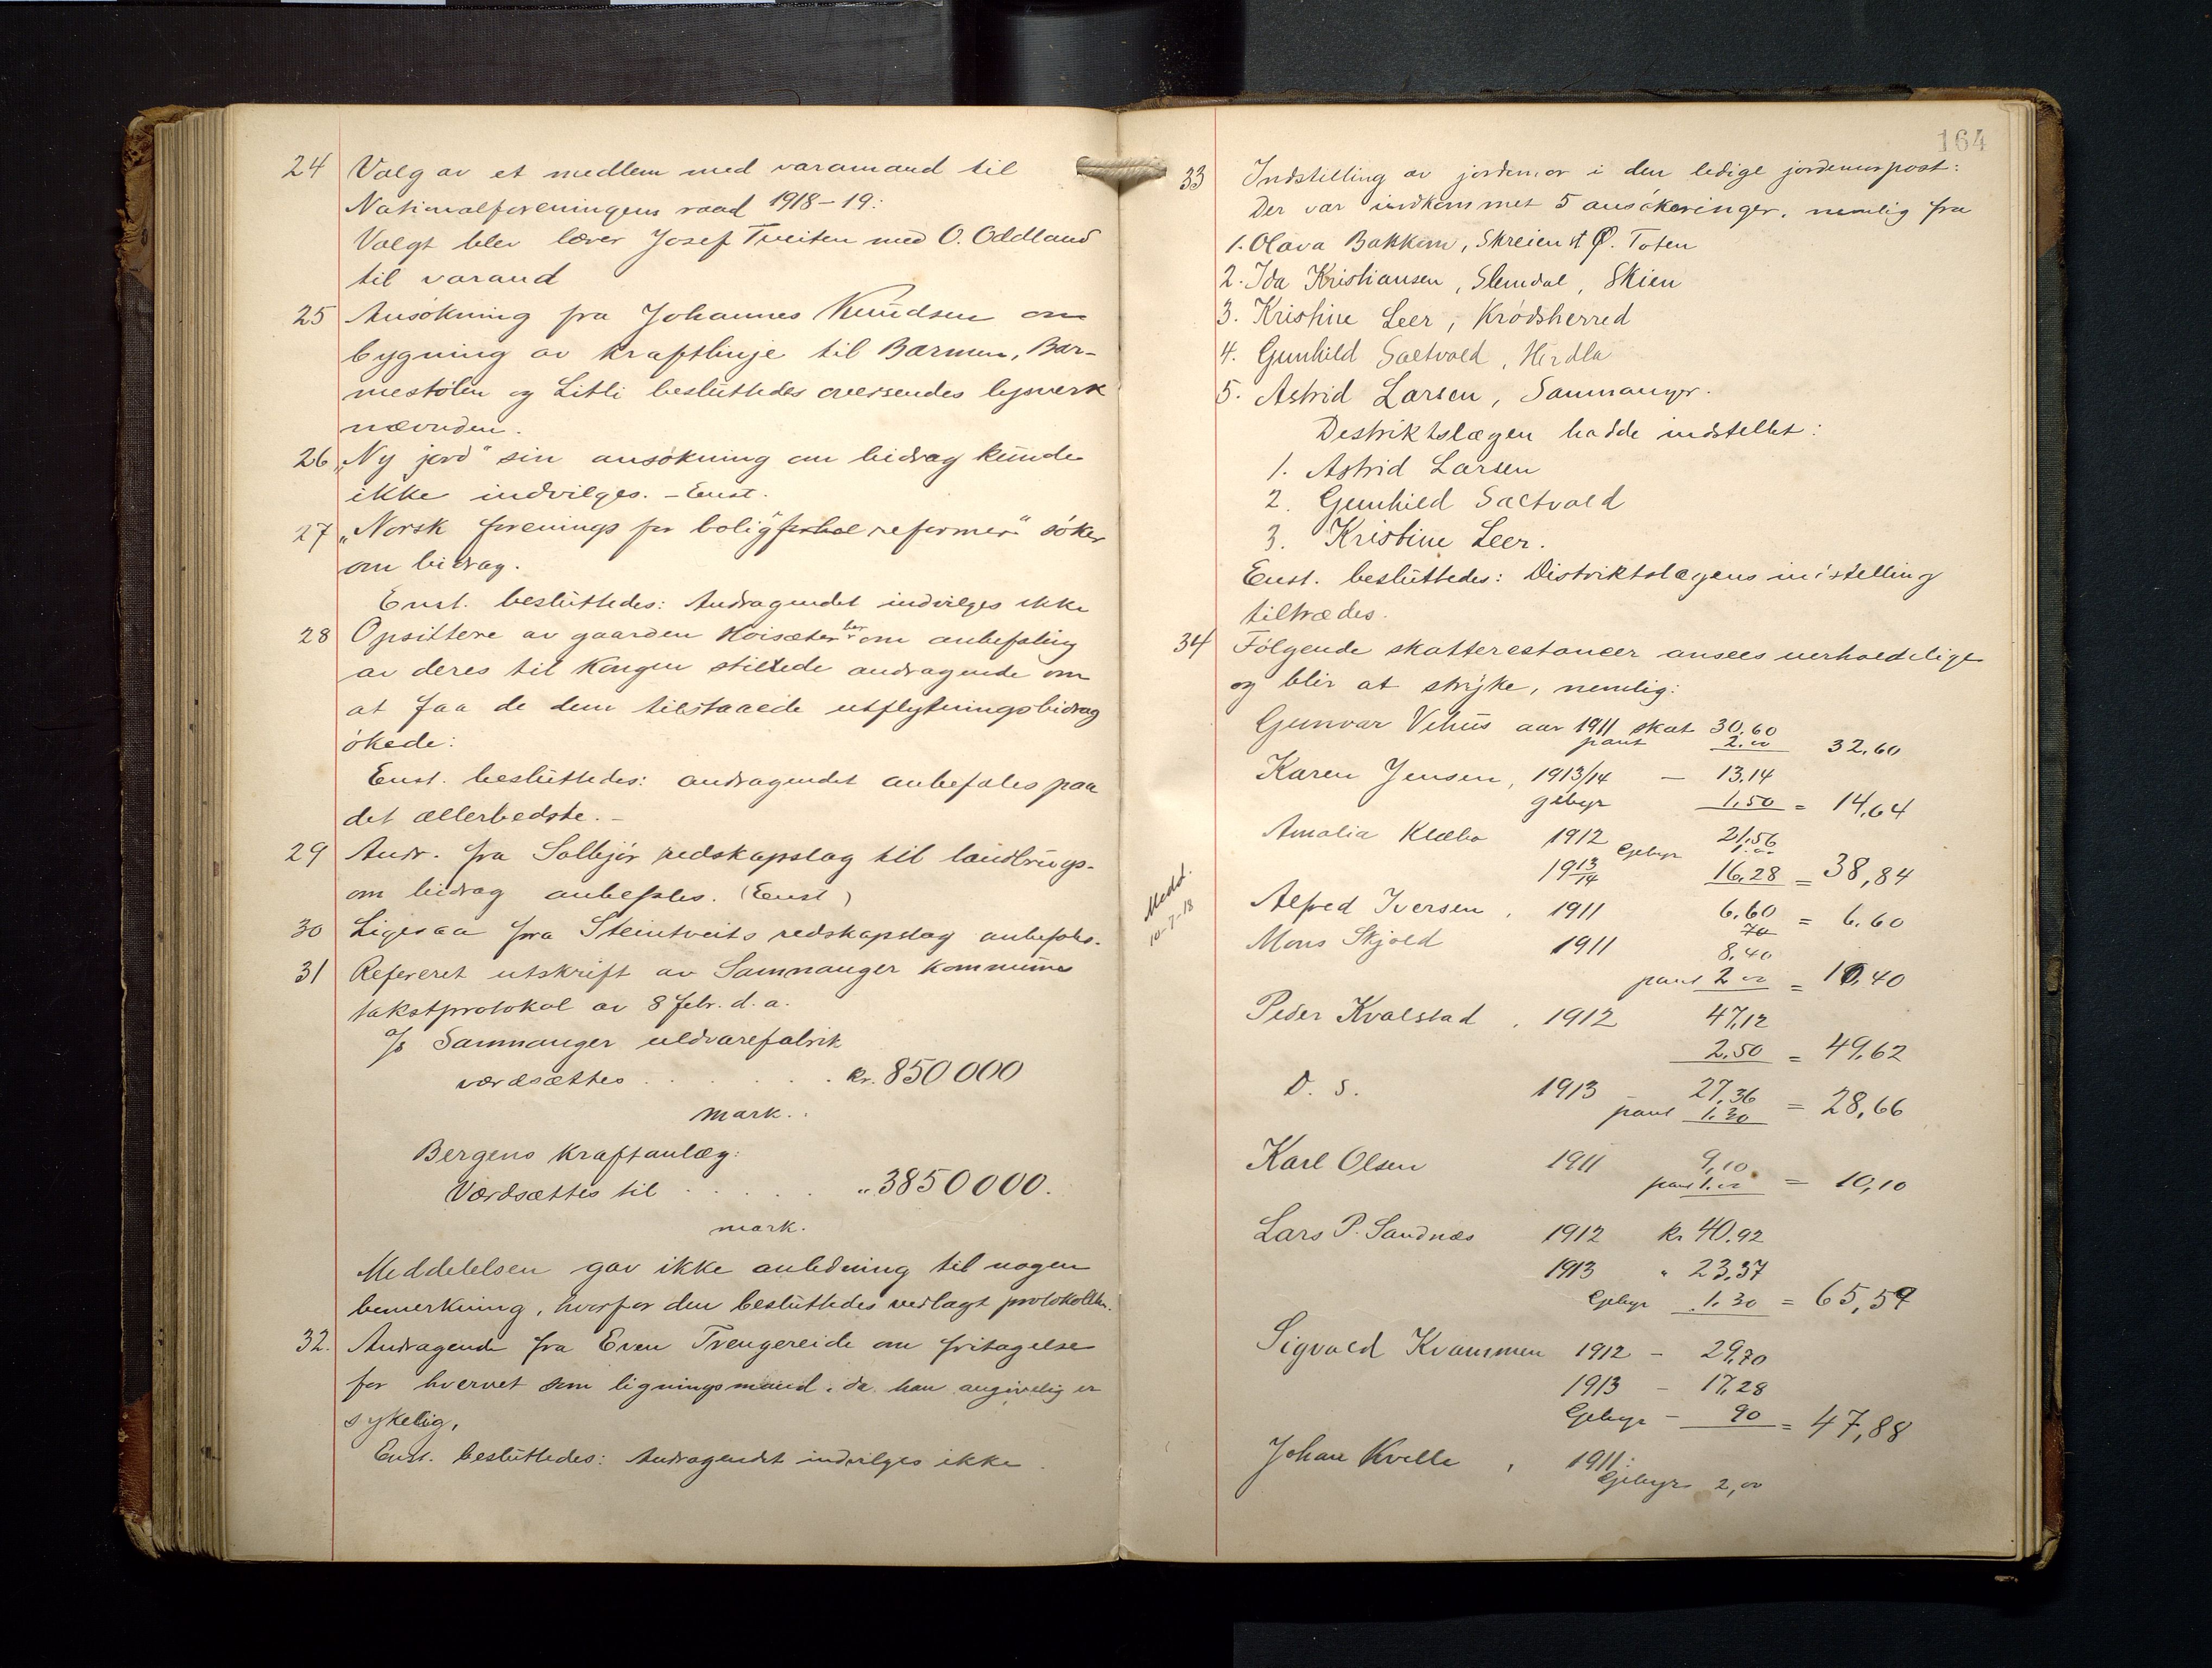 24 Valg av et medlem med varamand til
Nationalforeningens raad 1918-19:
Valgt blev lærer Josef Tveiten med O. Oddland
til varamd
25 Ansökning fra Johannes Knudsen om
bygning av kraftlinje til Barmen, Bar-
mestölen og Litli besluttedes oversendes lysverk
nævnden.
26 „Ny jord" sin ansökning om bidrag kunde
ikke indvilges. - Enst.
27 „Norsk forenings for bolig reformer" söker
om bidrag.
Enst. besluttedes: Andragendet indvilges ikke
28 Opsittere av gaarden Höisæter ber om anbefaling
av deres til Kongen stillede andragende om
at faa de dem tilstaaede utflytningsbidrag
ökede:
Enst. besluttedes: andragendet anbefales paa
det allerbedste. -
29 Andr. fra Solbjör redskapslag til landbrugs-
om bidrag anbefales. (Enst)
30 Ligesaa fra Steintveits redskapslag anbefales.
31 Refereret utskrift av Samnanger kommunes
takstprotokol av 8 febr. d. a.
a/s Samnanger uldvarefabrik
værdsættes . . . . . . kr. 850 000
mark..
Bergens kraftanlæg:
Værdsættes til . . . . . „ 3850000.
mark.
Meddelelsen gav ikke anledning til nogen
bemerkning, hvorfor den besluttedes vedlagt protokollen.
32. Andragende fra Even Trengereide om fritagelse
for hvervet som ligningsmand, da han angivelig er
sykelig,
Enst. besluttedes: Andragendet indvilges ikke.
164
33 Indstilling av jordmor i den ledige jordmorpost:
Der var indkommet 5 ansökninger, nemlig fra
1. Olava Bakkom, Skreien st Ø. Toten
2. Ida Kristiansen, Slemdal, Skien
3. Kristine Leer, Krödsherred
4. Gunhild Saltvold, Herdla
5. Astrid Larsen, Samnanger.
Destriktslægen hadde indstellet:
1. Astrid Larsen
2. Gunhild Saltvold
3. Kristine Leer.
Enst. besluttedes: Distriktslægens indstelling
tiltrædes.
34 Fölgende skatterestancer ansees uerholdelige
og blir at stryke, nemlig:
Gunvor Vehus aar 1911 skat 30,60
pant 2.00 32,60
Karen Jensen, 1913/14 - 13,14
gebyr 1,50 = 14,64
Amalia Klæbo 1912 21,56
Gebyr 1.00
1913/14 16,28 = 38,84
Medd.
10-7-18
Alfred Iversen, 1911 6.60 = 6.60
70
Mons Skjold 1911 8,40
pant 2 00 = 10,40
Peder Kvalstad, 1912 47,12
2.50 = 49,62
D. S. 1913 27,36
pant 1.30 = 28,66
Karl Olsen 1911 9,10
pant 1.00 = 10,10
Lars P. Sandnæs 1912 kr 40.92
1913 „ 23,37
Gebyr 1.30 = 65,59
Sigvald Kvammen 1912 - 29,70
1913 - 17,28
Gebyr - 90 = 47,88
Johan Kvelle, 1911:
Gebyr 2,00